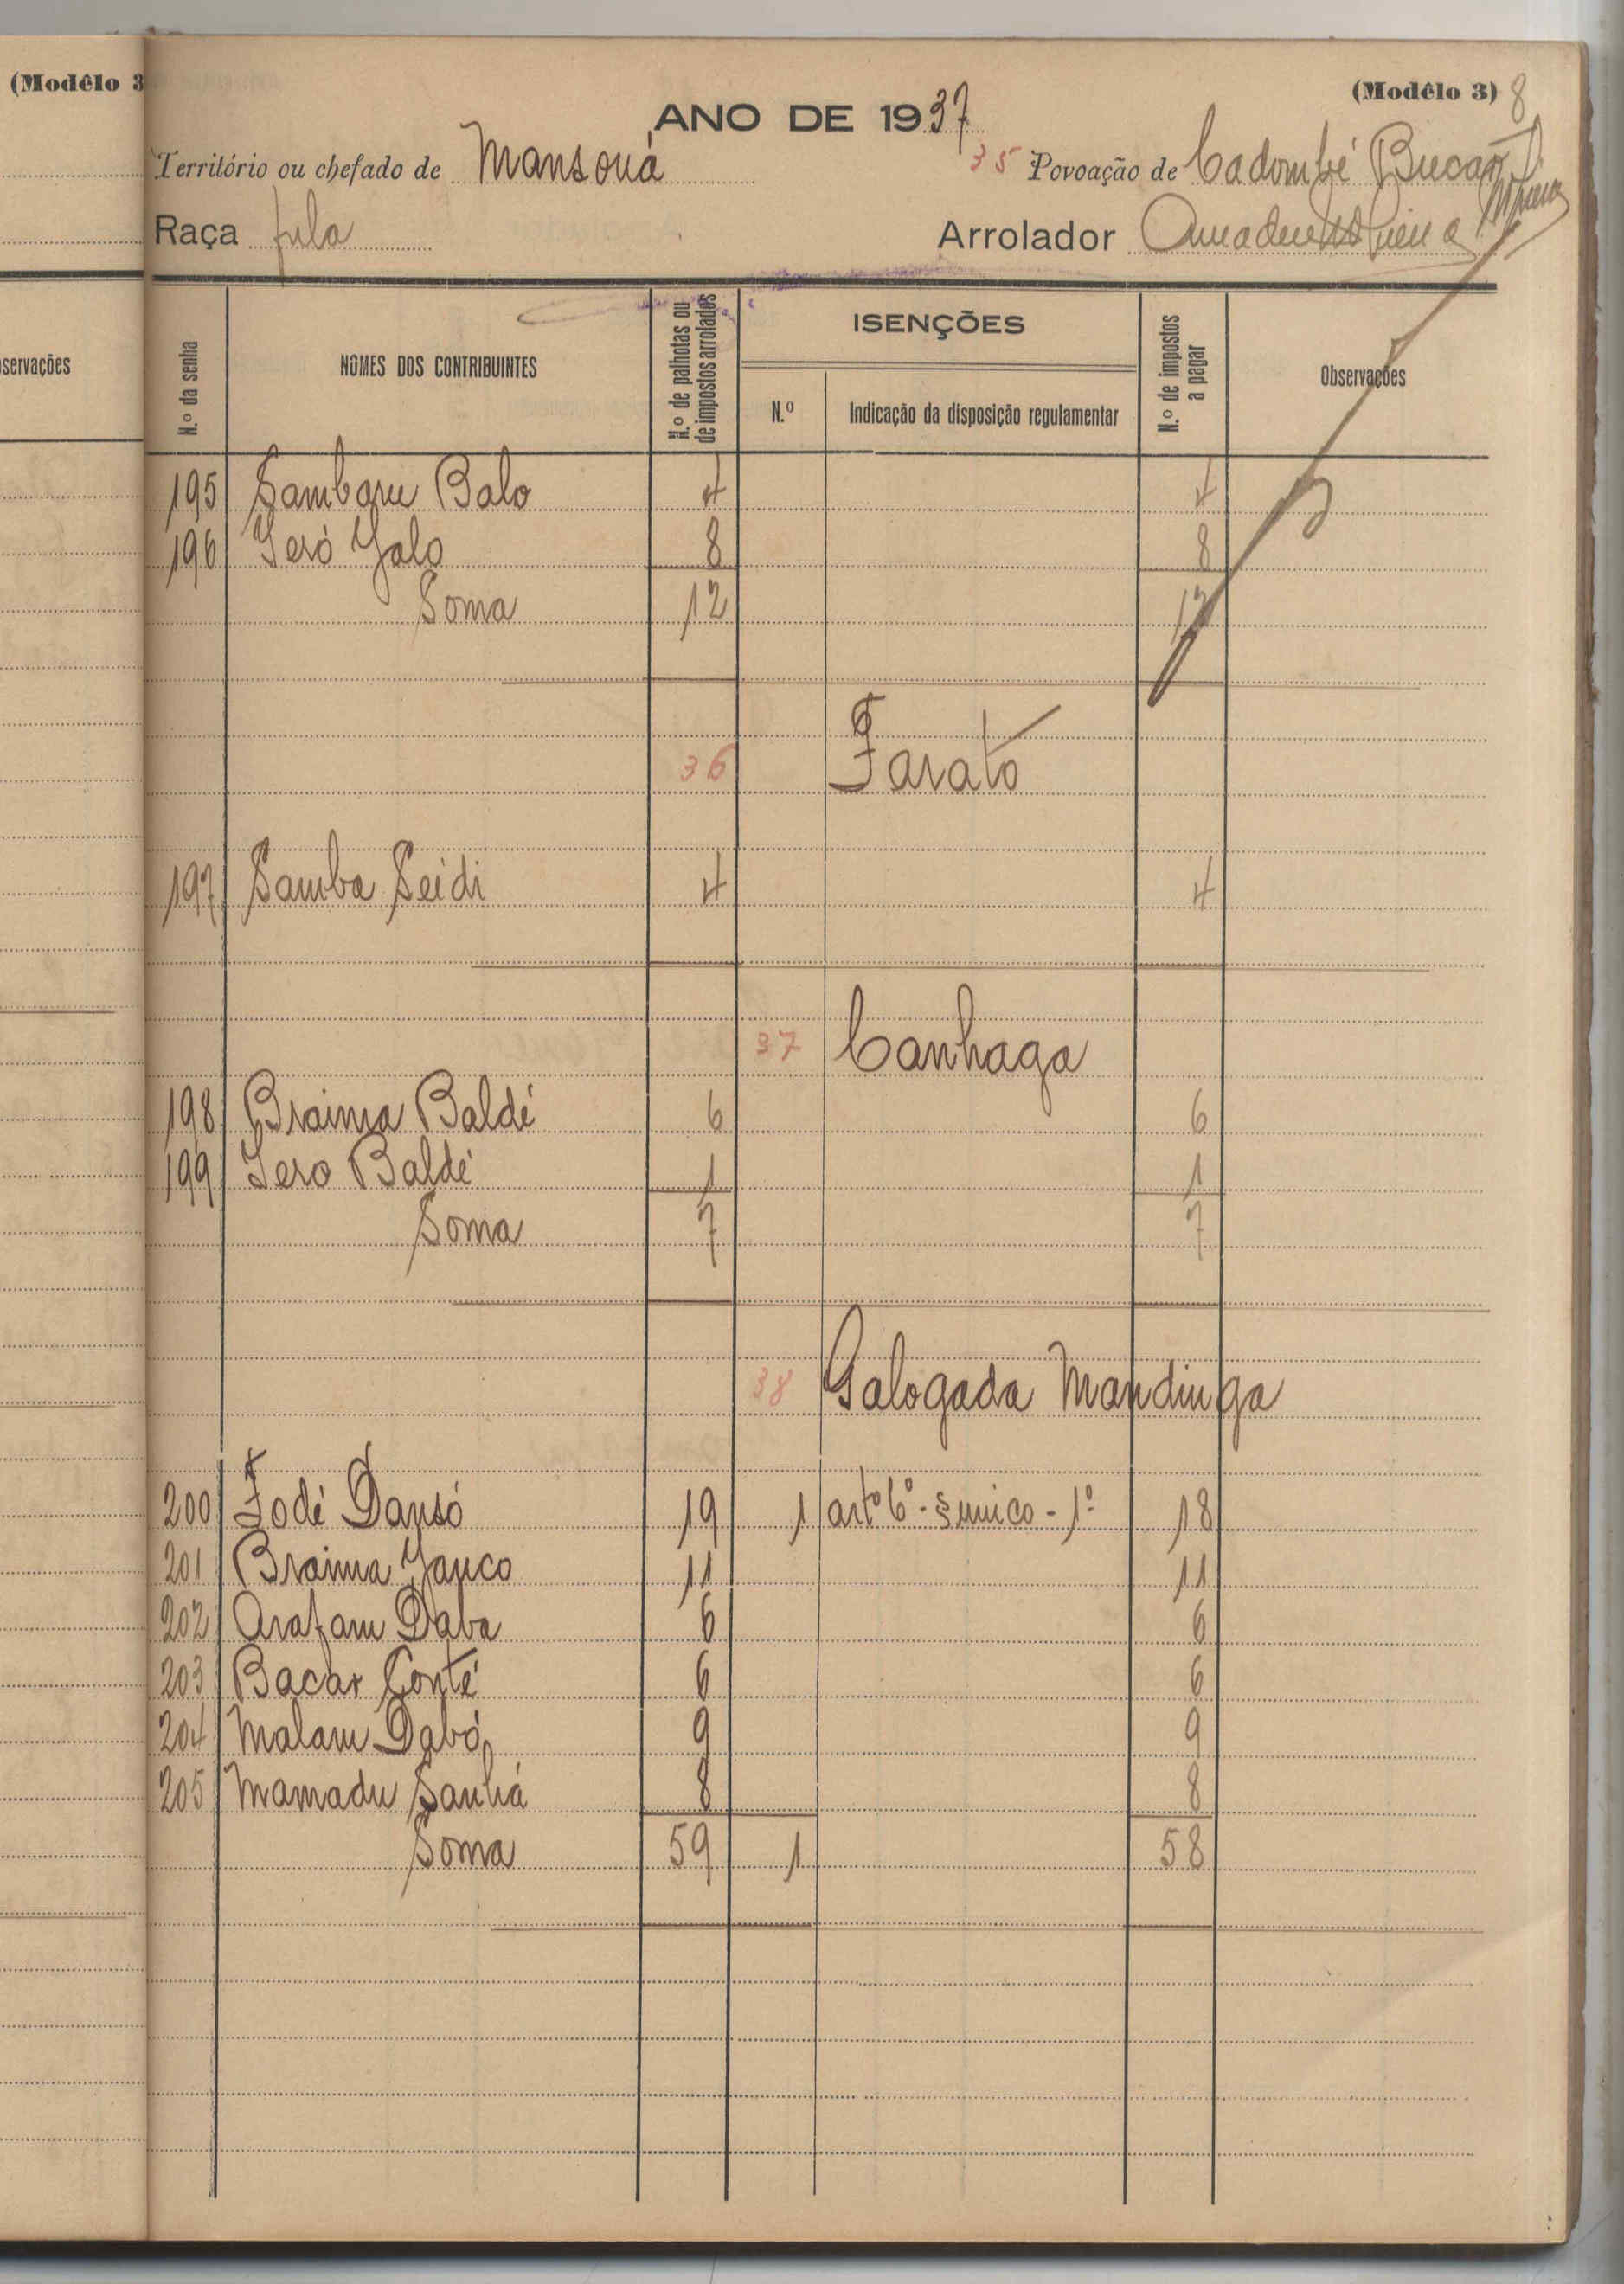 (Modêlo 3
servações
(Modêlo 3) 8
ANO DE 1937
Território ou chefado de Mansouá 35 Povoação de Cadombé Bucar
Raça fula Arrolador Amadeu
N.º da senha NOMES DOS CONTRIBUINTES N.º de palhotas ou de impostos arrolados ISENÇÕES N.º de impostos a pagar Observações
N.º Indicação da disposição regulamentar
195 Sambaru Balo 4 4
196 Seró Jalo 8 8
Soma 12 12
36 Farató
197 Samba Seidi 4 4
37 Canhaga
198 Braima Baldé 6 6
199 Sero Baldé 1 1
Soma 7 7
38 Galogada Mandinga
200 Fodé Dansó 19 1 artº 6º - § unico - 1º 18
201 Braima Jauco 11 11
202 Arafam Daba 6 6
203 Bacar Conté 6 6
204 Malam Dabó 9 9
205 Mamadu Sanhá 8 8
Soma 59 1 58